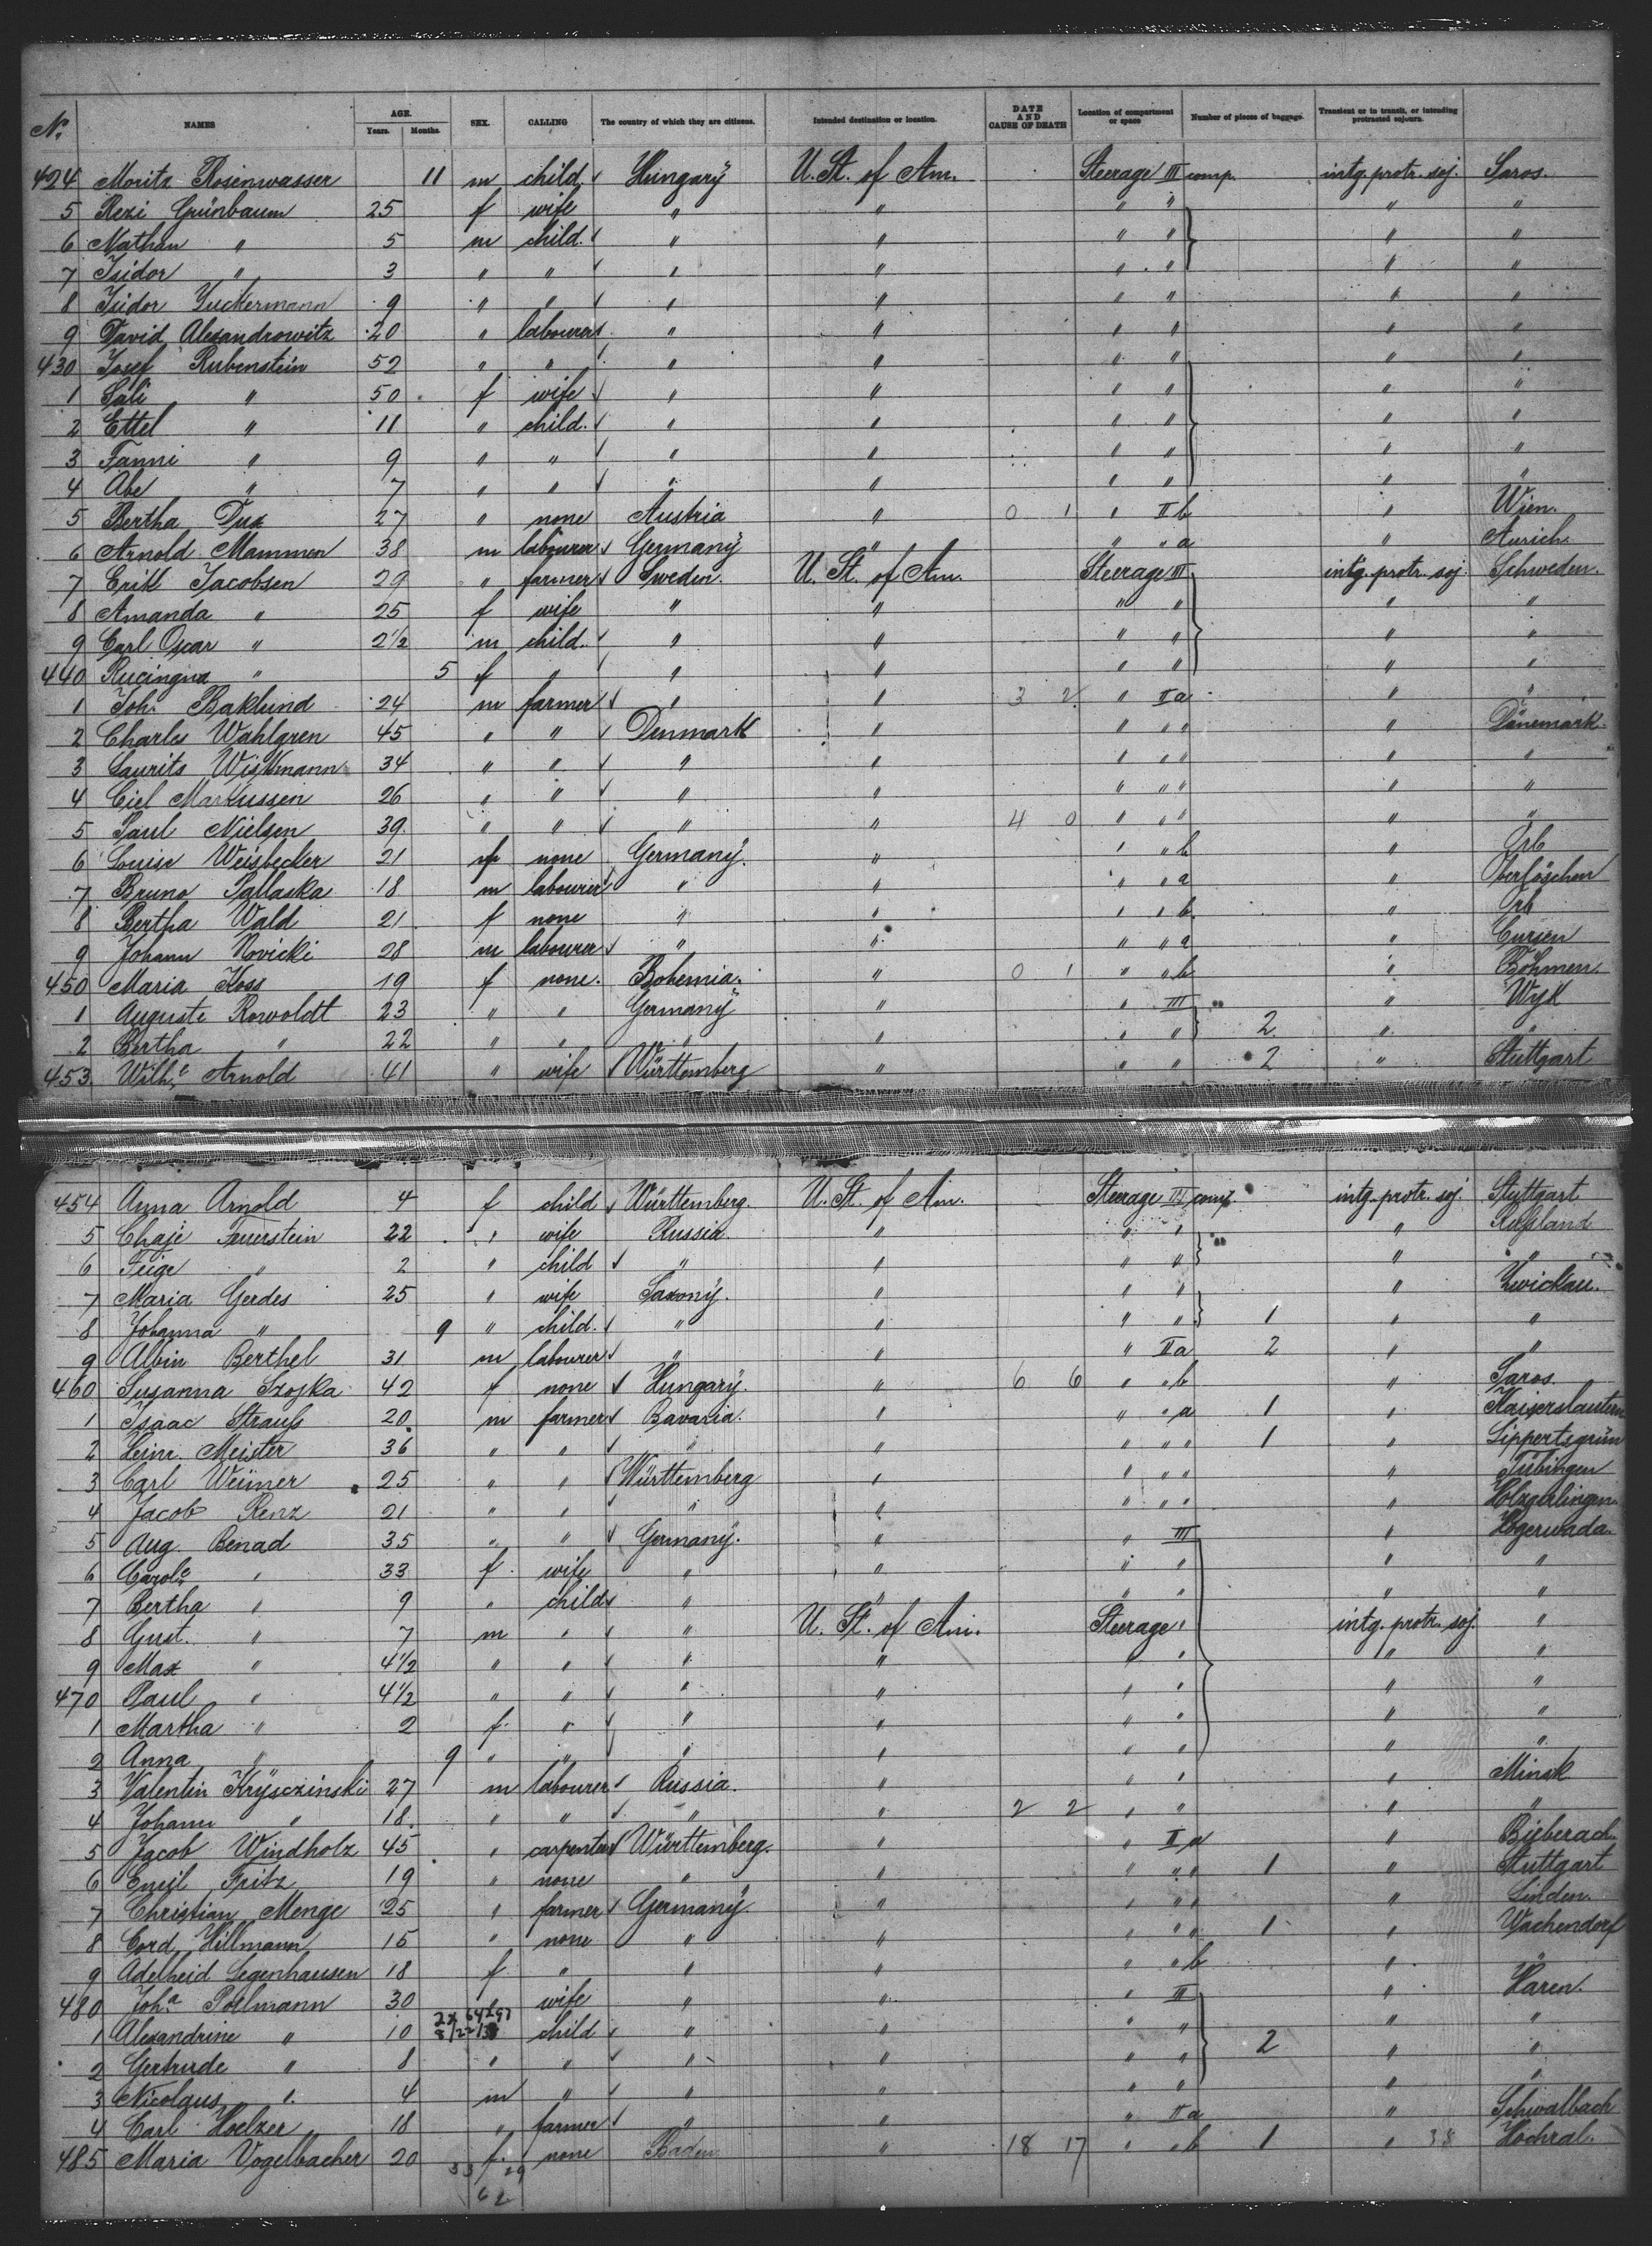 No. NAMES AGE. Years. Months. SEX. CALLING The country of which they are citizens. Intended destination or location. DATE AND CAUSE OF DEATH Location of compartment or space Number of pieces of baggage. Transient or in transit, or intending protracted sojourn.
424 Moritz Rosenwasser 11 m child Hungary U. St. of Am. Steerage III comp. intg. protr. soj. Saros.
5 Rezi Grünbaum 25 f wife " " " " " "
6 Nathan " 5 m child. " " " " " "
7 Isidor " 3 " " " " " " " "
8 Isidor Zuckermann 9 " " " " " " " "
9 David Alexandrowitz 20 " labourer " " " " " "
430 Josef Rubenstein 52 " " " " " " " "
1 Sali " 50 f wife " " " " " "
2 Ettel " 11 " child. " " " " " "
3 Fanni " 9 " " " " " " " "
4 Abe " 7 " " " " " " " "
5 Bertha Dux 27 " none Austria " 0 1 " II b " Wien.
6 Arnold Mammen 38 m labourer Germany " " " a " Aurich
7 Erik Jacobsen 29 " farmer Sweden. U. St. of Am. Steerage III intg. protr. soj. Schweden.
8 Amanda " 25 f wife " " " " " "
9 Carl Oscar " 2 1/2 m child. " " " " " "
440 " 5 f " " " " " " "
1 Joh. Baklund 24 m farmer " " 3 2 " II a " "
2 Charles Wahlgren 45 " " Denmark " " " " " Dänemark
3 Laurits Wistmann 34 " " " " " " " " "
4 Ciel Markussen 26 " " " " " " " " "
5 Paul Nielsen 39. " " " " 4 0 " " " " "
6 Louise Weisbecker 21 f none Germany. " " " b " Orb
7 Bruno Pallaska 18 m labourer " " " " a "
8 Bertha Wald 21 f none " " " " b " Orb
9 Johann Novicki 28 m labourer " " " " a " Cursen
450 Maria Koss 19 f none. Bohemia. " 0 1 " " b " Böhmen.
1 Auguste Rowoldt 23 " " Germany " " III " Wyk
2 Bertha " 22 " " " " " " 2 " "
453 Wilh.e Arnold 41 " wife Württemberg " " " 2 " Stuttgart
454 Anna Arnold 4 f child Württemberg. U. St. of Am. Steerage III comp. intg. protr. soj. Stuttgart
5 Chaje Feuerstein 22 " wife Russia. " " " " Rußland
6 Feige " 2 " child " " " " " "
7 Maria Gerdes 25 " wife Saxony. " " " " Zwickau.
8 Johanna " 9 " child. " " " " 1 " "
9 Albin Berthel 31 m labourer " " " II a 2 " "
460 Susanna Szojka 42 f none Hungary. " 6 6 " " b " Saros.
1 Isaac Strauß 20 m farmer Bavaria. " " " a 1 " Kaiserslautern
2 Heinr. Meister 36 " " " " " " " 1 " Lippertsgrün
3 Carl Weimer 25 " " Württemberg " " " " " Tübingen
4 Jacob Renz 21 " " " " " " " " Holzgerlingen.
5 Aug. Benad 35 " " Germany. " " III " Hogerwada.
6 Carol.e " 33 f. wife " " " " " "
7 Bertha " 9 " child " " " " " "
8 Gust. " 7 m " " U. St. of Am. Steerage " intg. protr. soj. "
9 Max " 4 1/2 " " " " " " " "
470 Paul " 4 1/2 " " " " " " " "
1 Martha " 2 f. " " " " " " "
2 Anna " 9 " " " " " " " "
3 Valentin Krysczinski 27 m labourer Russia. " " " " Minsk
4 Johann " 18. " " " " 2 2 " " " "
5 Jacob Windholz 45 " carpenter Württemberg. " " II a " Bieberach
6 Emil Fritz 19 " none " " " " " 1 " Stuttgart
7 Christian Menge 25 " farmer Germany " " " " " Linden.
8 Cord Hillmann 15 " none " " " " " 1 " Wachendorf
9 Adelheid Segenhausen 18 f. " " " " " b "
480 Joh.a Pohlmann 30 " wife " " " III " Haren.
1 Alexandrine " 10 child " " " " " "
2 Gertrude " 8 " " " " " " 2 " "
3 Nicolaus " 4 m " " " " " " "
4 Carl Hoelzer 18 " farmer " " " II a " Schwalbach
485 Maria Vogelbacher 20 f. none Baden " 18 17 " " b 1 " 38 Hochral.
33 29
62